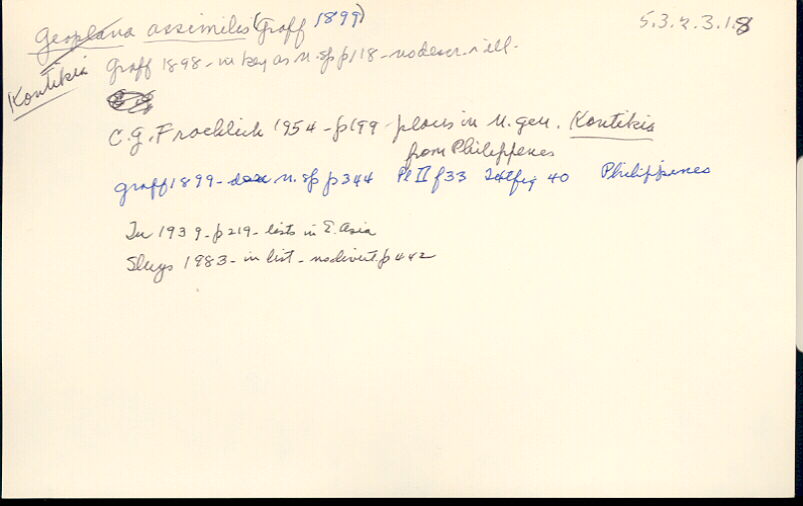 Geoplana assimilis (Graff 1899) 5.3.2.3.1.8
Kontikia
Graff 1898 - in key as n. sp p 118 - no descr. n ill.
C.G. Froehlich 1954 - p199 - places in n. gen. Kontikia
from Philippenes
Graff 1899 - desc n. sp p 344 Pl II f 33 Textfig 40 Philippines
Tu 1939 - p219 - lists in E. Asia
Sluys 1983 - in list - p 442